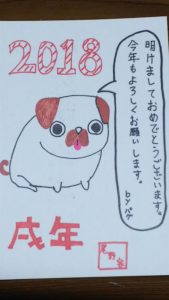 2018
明けましておめでとうございます。
今年もよろしくお願いします。
by
戌年